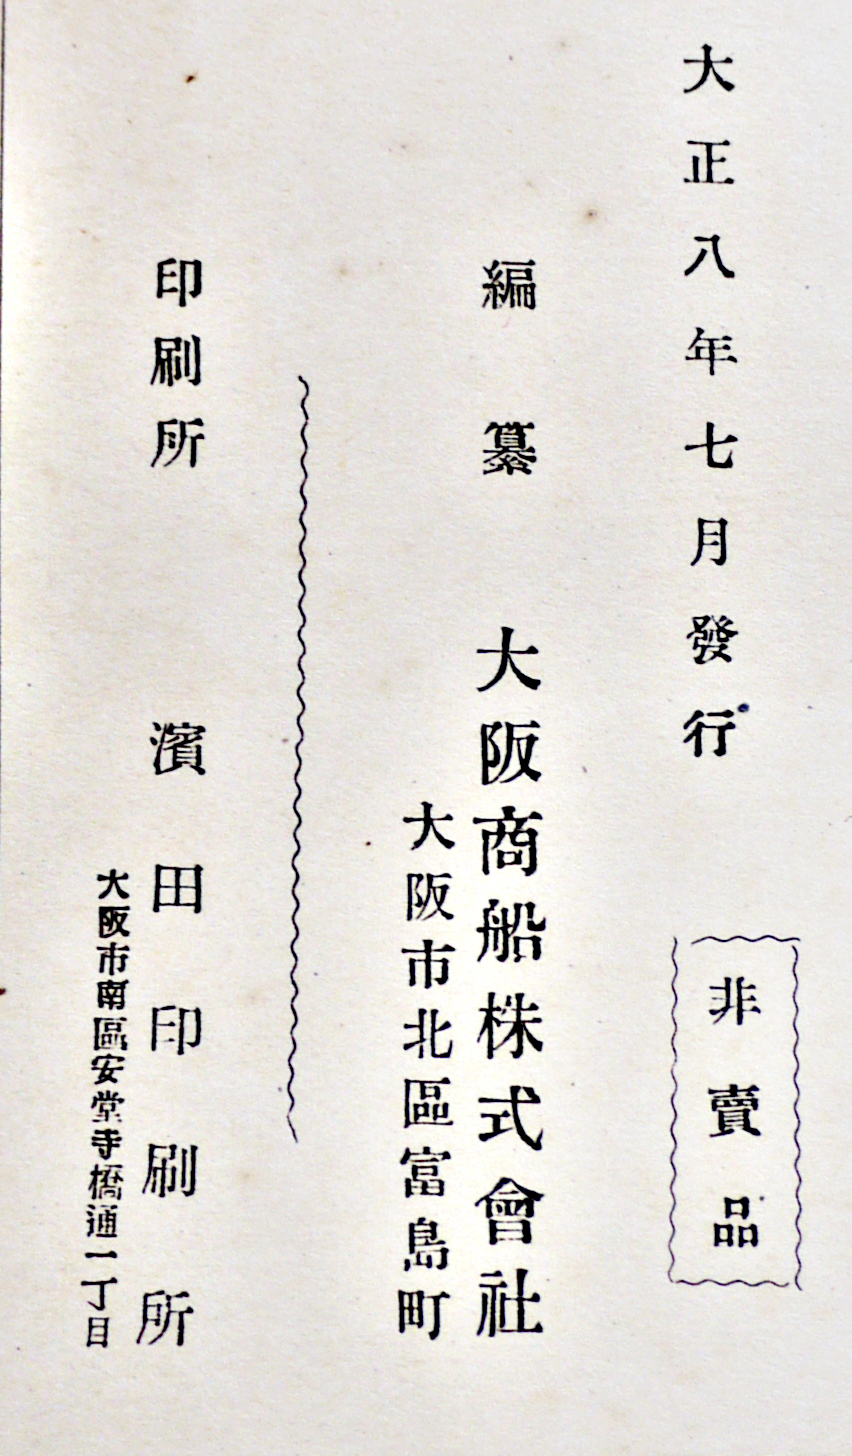 大正八年七月發行
非賣品
編纂 大阪商船株式會社
大阪市北區富島町
印刷所 濱田印刷所
大阪市南區安堂寺橋通一丁目